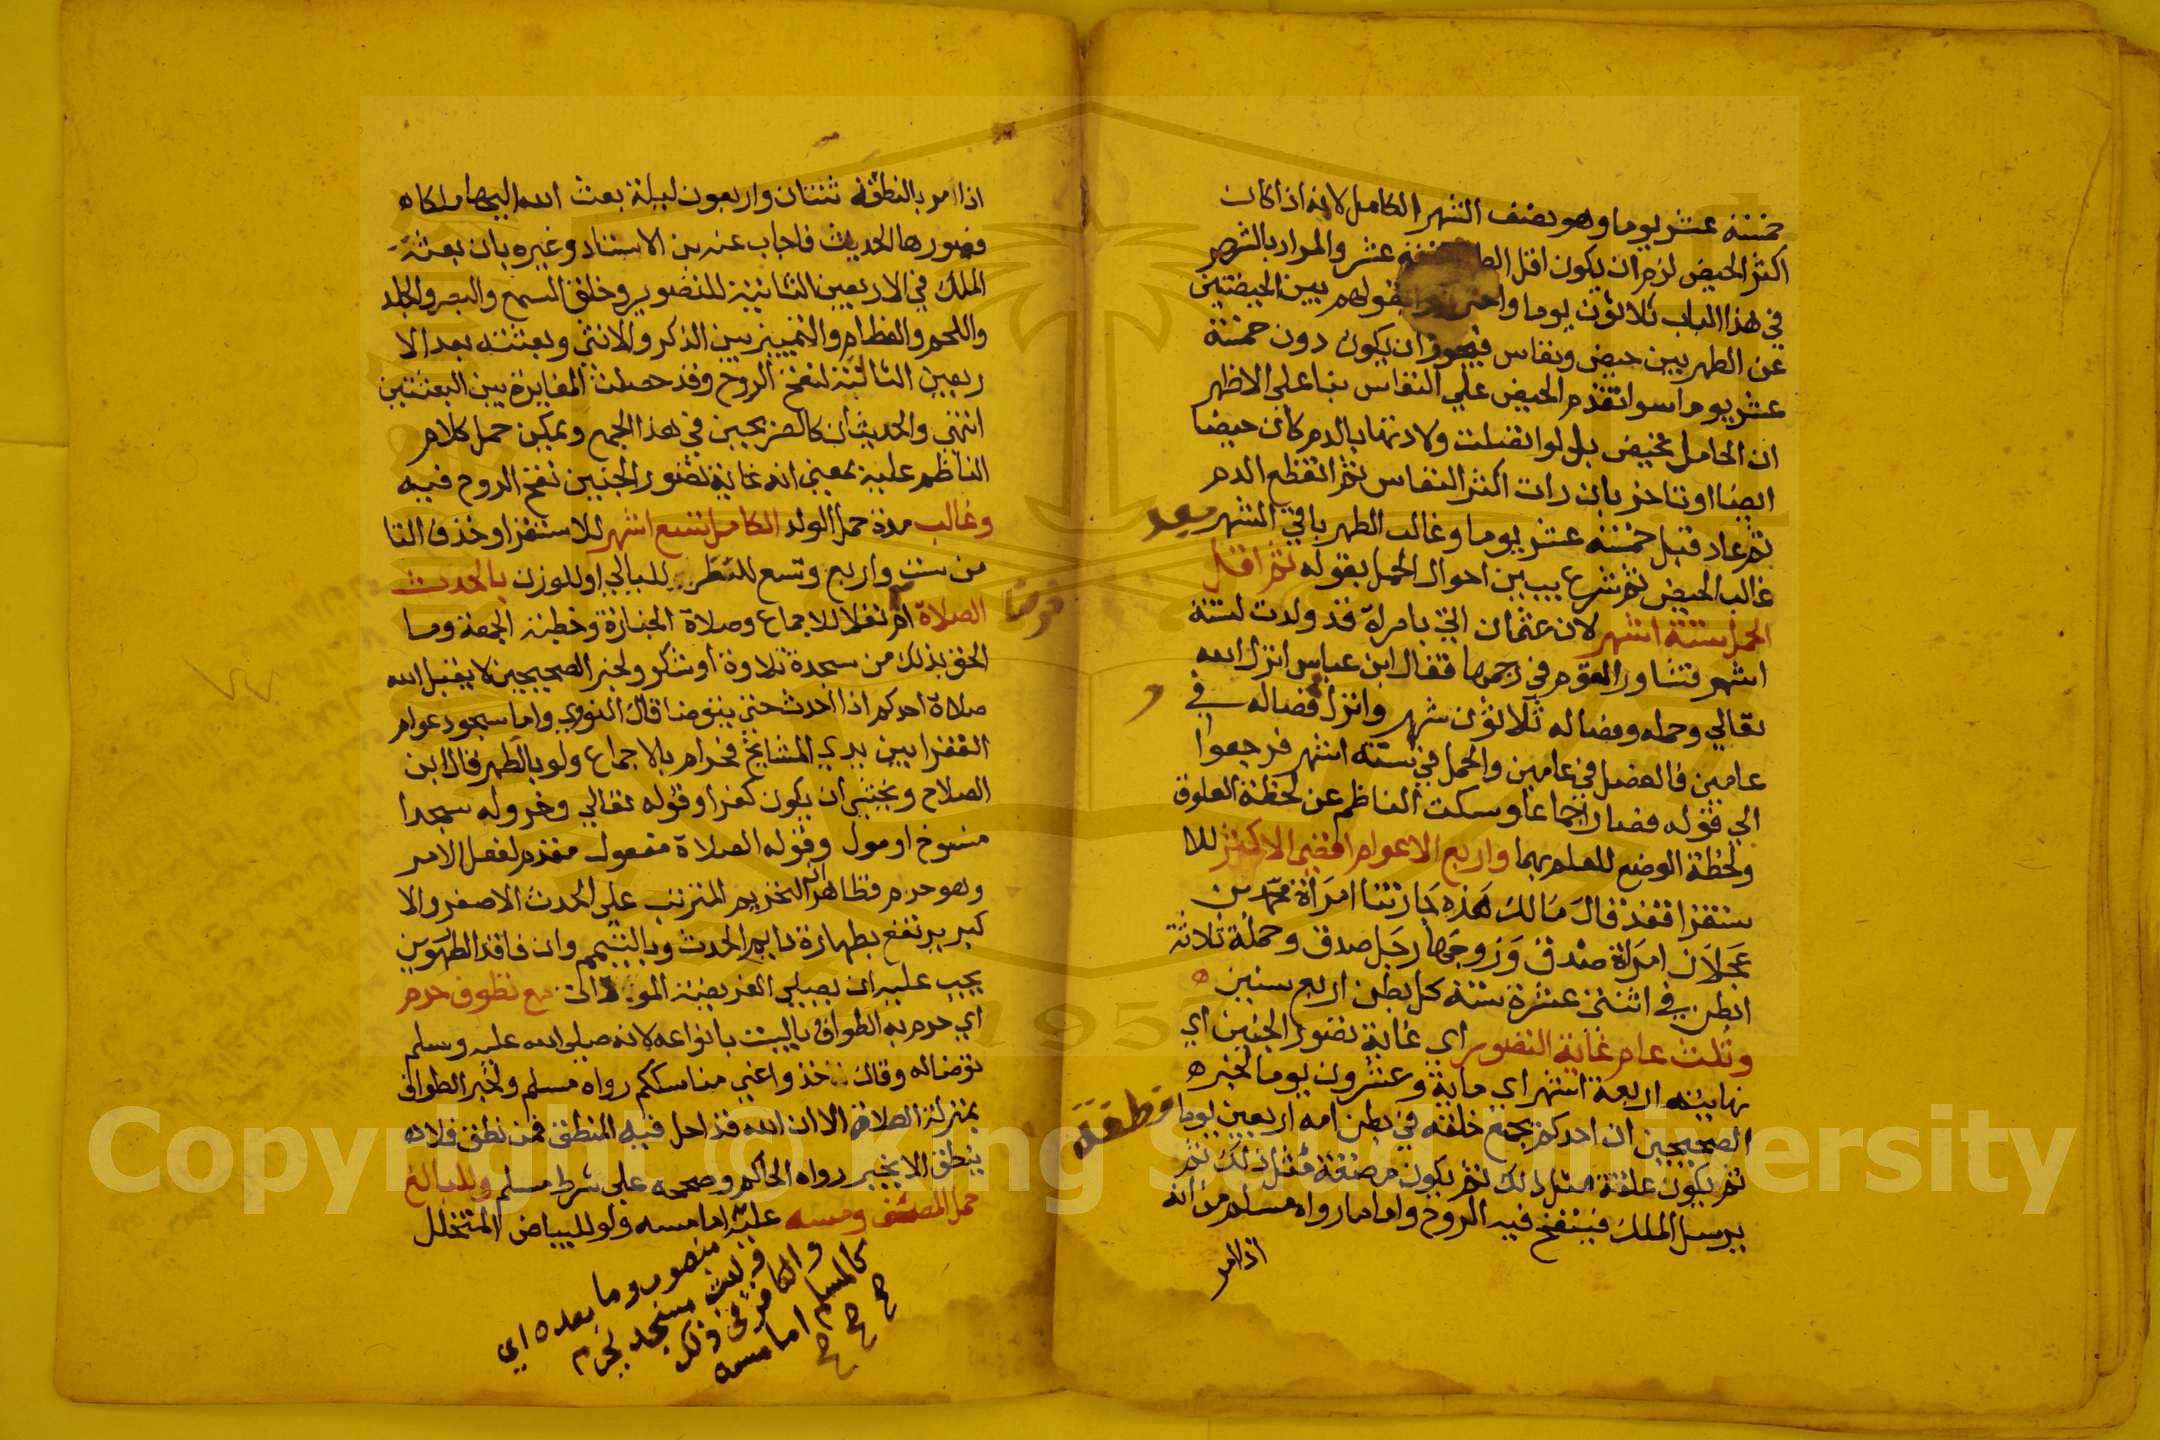 خمسة عشر يوما وهو نصف الشهر الكامل لانه اذا كان
اكثر الحيض لزم ان يكون اقل الطهر خمسة عشر والمراد بالشهر
في هذا الباب ثلاثون يوما واحترزوا بقولهم بين الحيضتين
عن الطهر بين حيض ونفاس فيجوز ان يكون دون خمسة
عشر يوم اسوا تقدم الحيض علي النفاس بنا على الاظهر
ان الحامل تحيض بل لو اتصلت ولادتها بالدم كان حيضا
ايضا او تاخر بان رات اكثر النفاس ثم انقطع الدم
ثم عاد قبل خمسة عشر يوما وغالب الطهر باقي الشهر بعد
غالب الحيض ثم شرع يبين احوال الحمل بقوله ثم اقل
الحمل ستة اشهر لان عثمان اتي بامراة قد ولدت لستة
اشهر فتشاور القوم في رجمها فقال ابن عباس انزل الله
تعالي وحمله وفصاله ثلاثون شهر وانزل فصاله في و
عامين فالفصل في عامين والحمل في ستة اشهر فرجعوا
الي قوله فصار اجماعا وسكت الناظم عن لحظة العلوق
ولحظة الوضع للعلم بهما واربع الاعوام اقصى الاكثر للا
ستقرا فقد قال مالك هذه جارتنا امراة محمد بن
عجلان امراة صدق وزوجها رجل صدق وحملة ثلاثة
ابطن في اثنتي عشرة سنة كل بطن اربع سنين ه
وثلث عام غاية التصور اي غاية تصور الجنين اي
نهايته اربعة اشهر اي ماية وعشرون يوما لخبره
الصحيحين ان احدكم يجمع خلقه في بطن امه اربعين يوما نطفة
ثم يكون علقة مثل ذلك ثم يكون مضغة مثل ذلك ثم
يرسل الملك فينفخ فيه الروح واما ما رواه مسلم من انه
اذا مر
اذا مر بالنطفة ثنتان واربعون ليلة بعث الله اليها ملكا ه
فصورها الحديث فاجاب عنه بن الاستاد وغيره بان بعثة
الملك في الاربعين الثانية للتصوير وخلق السمع والبصر والجلد
واللحم والعظام والتمييز بين الذكر والانثي وبعثته بعد الا
ربعين الثالثة لنفخ الروح وقد حصلت المغايرة بين البعثتين
انتهي والحديثان كالصريحين في هذا الجمع ويمكن حمل كلام
الناظم عليه بمعني انه غاية تصور الجنين نفخ الروح فيه
وغالب مدة حمل الولد الكامل تسع اشهر للاستقرا وحذف التا
من ست واربع وتسع للنظر لليالي او للوزن بالحدث
الصلاة ام نفلا للاجماع وصلاة الجنازة وخطبة الجمعة وما فرضا
الحق بذلك من سجدة تلاوة او شكر ولخبر الصحيحين لا يقبل الله
صلاة احدكم اذا احدث حتى يتوضا قال النووي واما سجود عوام
الفقرا بين يدي المشايخ فحرام بالاجماع ولو بالطهر قال ابن
الصلاح ويخشي ان يكون كفرا وقوله تعالي وخروا له سجدا
منسوخ او مول وقوله الصلاة مفعول مقدم لفعل الامر
وهو حرم فظاهر ان التحريم المترتب علي الحدث الاصغر والا
كبر يرتفع بطهارة دايم الحدث وبالتيمم وان فاقد الطهورين
يجب عليه ان يصلي الفريضة الموداة مع تطوف حرم
اي حرم به الطواف بالبيت بانواعه لانه صلي الله عليه وسلم
توضا له وقال خذوا عني مناسككم رواه مسلم ولخبر الطواف
بمنزلة الصلاة الا ان الله قد احل فيه المنطق فمن نطق فلا ه
ينطق الا بخير رواه الحاكم وصححه علي شرط مسلم وللبالغ
حمل المصحف ومسه عليه اما مسه ولو للبياض المتخلل
منصوب وما بعده اي
وليث مسجد لحرم
والكافر في ذلك
كالمسلم اما مسه
صح صح صح
Copyright © King Saud University
1957